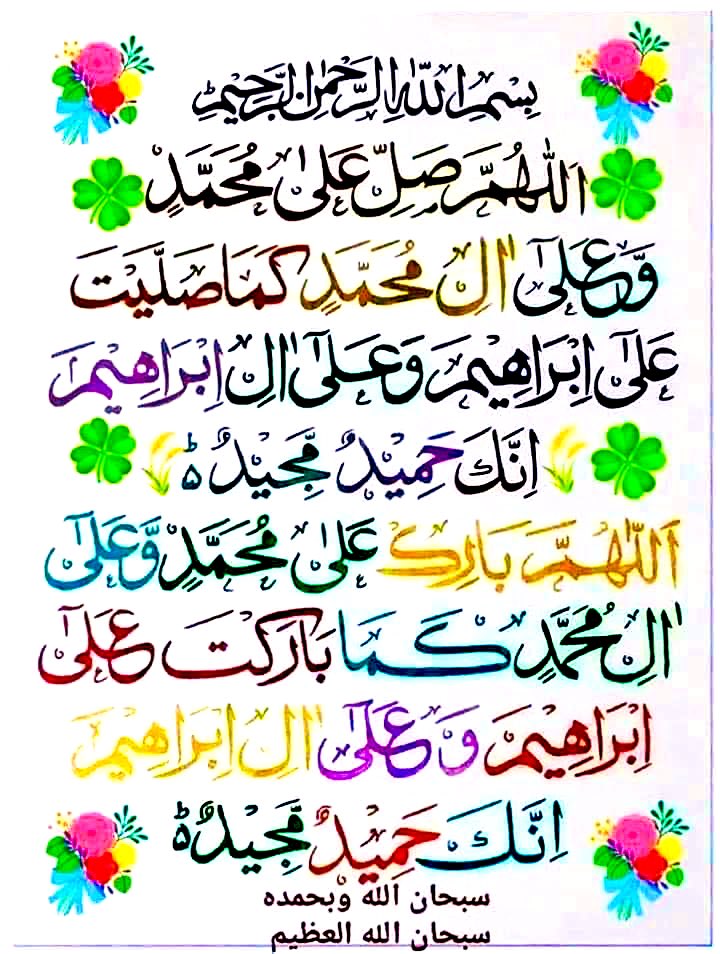 بِسْمِ اللهِ الرَّحْمٰنِ الرَّحِيْمِ
اَللّٰهُمَّ صَلِّ عَلٰى مُحَمَّدٍ
وَّعَلٰٓى اٰلِ مُحَمَّدٍ كَمَا صَلَّيْتَ
عَلٰٓى اِبْرَاهِيْمَ وَعَلٰٓى اٰلِ اِبْرَاهِيْمَ
اِنَّكَ حَمِيْدٌ مَّجِيْدٌ ؕ
اَللّٰهُمَّ بَارِكْ عَلٰى مُحَمَّدٍ وَّعَلٰٓى
اٰلِ مُحَمَّدٍ كَمَا بَارَكْتَ عَلٰٓى
اِبْرَاهِيْمَ وَعَلٰٓى اٰلِ اِبْرَاهِيْمَ
اِنَّكَ حَمِيْدٌ مَّجِيْدٌ ؕ
سبحان الله وبحمده
سبحان الله العظيم